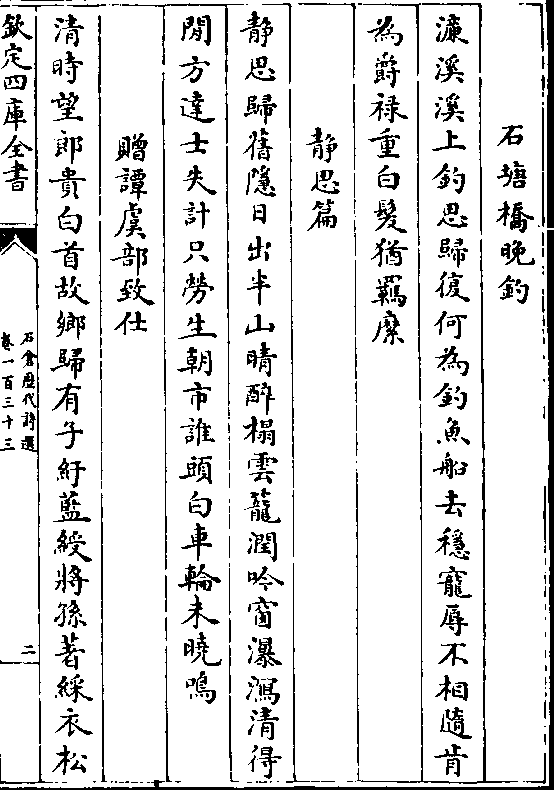 石塘橋晚釣
濂溪溪上釣思歸復何為釣魚船去穩寵辱不相隨肯
為爵祿重白髮猶羈縻
静思篇
静思歸舊隱日出半山晴醉榻雲籠潤吟窗瀑瀉清得
閒方達士失計只勞生朝市誰頭白車輪未曉鳴
贈譚虞部致仕
清時望郎貴白首故鄉歸有子紆藍綬將孫著綵衣松
欽定四庫全書
石倉歷代詩選
卷一百三十三
二